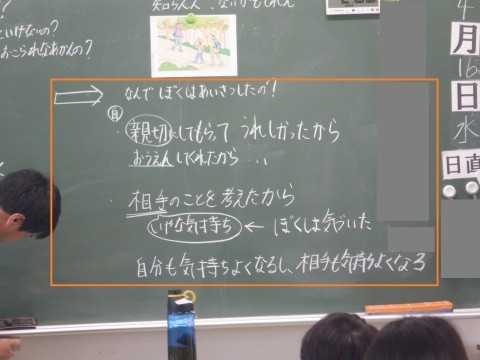 知らん人
といけないの?
おこられなあかんの?
なんで ぼくはあいさつしたの?
自
・親切にしてもらって うれしかったから
おうえんしてくれたから...
・相手のことを考えたから
いやな気持ち ← ぼくは気づいた
自分も気持ちよくなるし、相手も気持ちよくなる
4
月
16
日
水
日直